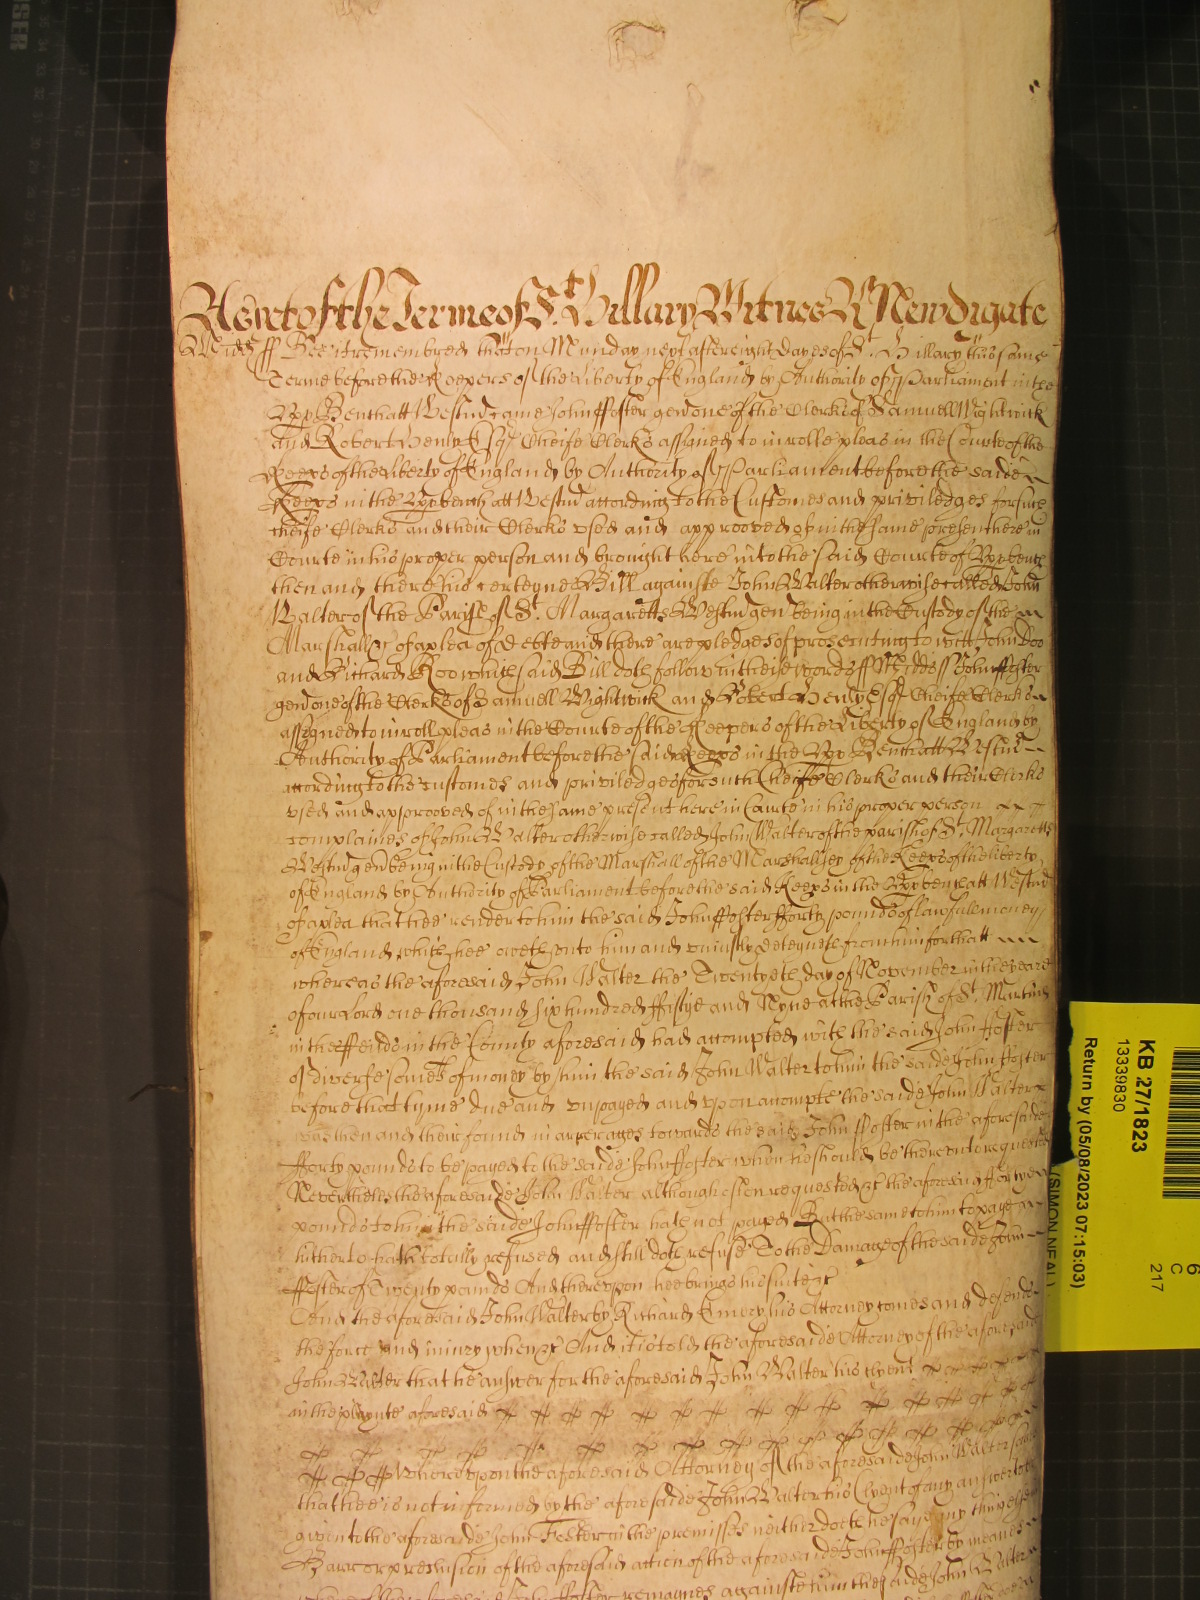 As yet of the Terme of St. Hillary Witnes R Newdigate
Midds ss Bee it remembred that on Munday next after eight dayes of St. Hillary this same
Terme before the Keepers of the Liberty of England by Authority of Parliament in the
Upp Bench att Westm came John Foster gen one of the Clerks of Samuell Wightwick
and Robert Henly Esqr Cheife Clerks assigned to inrolle pleas in the Courte of the
Keeps of the Liberty of England by Authority of Parliament before the saide
Keeps in the Upp bench att Westm according to the Customes and priviledges for such
cheife Clerks and their Clerks used and approoved of in the same present here in
Courte in his proper person and brought here into the said Courte of Upp bench
then and there his certeyne Bill againste John Walter otherwise called John
Walter of the Parish of St. Margaretts Westm gen being in the Custody of the
Marshall &c of a plea of Debte and there are pledges of prosecuting to witt John Doo
and Richard Roo which said Bill doth follow in theise words ss Midds ss John Foster
gen one of the Clerks of Samuell Wightwick and Robert Henly Esqr Cheife Clerks
assigned to inroll pleas in the Courte of the Keepers of the Liberty of England by
Authority of Parliament before the said Keeps in the Upp Bench att Westm
according to the customes and priviledges for such Cheife Clerks and their Clerks
used and approoved of in the same present here in Courte in his proper person
complaines of John Walter otherwise called John Walter of the parish of St. Margaretts
Westm gen being in the Custody of the Marshall of the Marshallsey of the Keeps of the liberty
of England by Authority of Parliament before the said Keeps in the Upp bench att Westm
of a plea that hee render to him the said John Foster Forty pounds of lawfull money
of England which hee oweth unto him and uniustly deteyneth from him for that
whereas the aforesaid John Walter the Twentyeth day of November in the yeare
of our Lord one thousand six hundred Fiftye and Nyne at the Parish of St. Martins
in the Feilds in the County aforesaid had accompted with the said John Foster
of diverse somes of money by him the said John Walter to him the saide John Foster
before that tyme due and unpayed and upon accompte the saide John Walter
was then and their found in arrerages towards the said John Foster in the aforesaide
Forty pounds to be payed to the saide John Foster when he should be thereunto requested
Neverthelesse the aforesaide John Walter although often requested &c the aforesaid Fortye
pounds to him the saide John Foster hath not payed But the same to him to paye
hitherto hath totally refused and still doth refuse To the Damage of the saide John
Foster of Twenty pounds And thereupon hee brings his suite &c
And the aforesaid John Walter by Richard Emery his Attorney comes and defends
the force and iniury when &c And it is told the aforesaide Attorney of the aforesaid
John Walter that he answer for the aforesaid John Walter his clyent
in the playnte aforesaid
Whereupon the aforesaid Attorney of the aforesaide John Walter saith
that hee is not informed by the aforesaide John Walter his Clyent of any answer to be
given to the aforesaide John Foster in the premisses neither doeth he say any thing else
in Barr or prevision of the aforesaid action of the aforesaide John Foster by meanes
aforesaide John Foster remaynes againste him the saide John Walter
KB 27/1823
13339830
Return by (05/08/2023 07:15:03)
(SIMON NEAL)
6
C
217